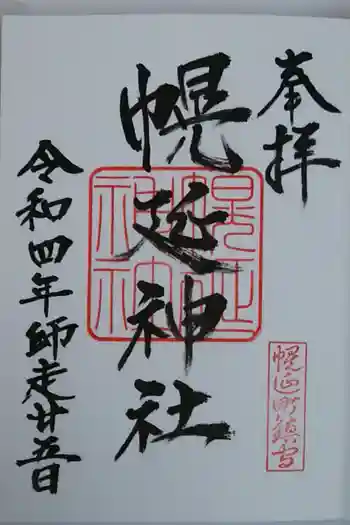 奉拝
幌延町鎮守
幌延神社
幌延神社
令和四年師走廿五日